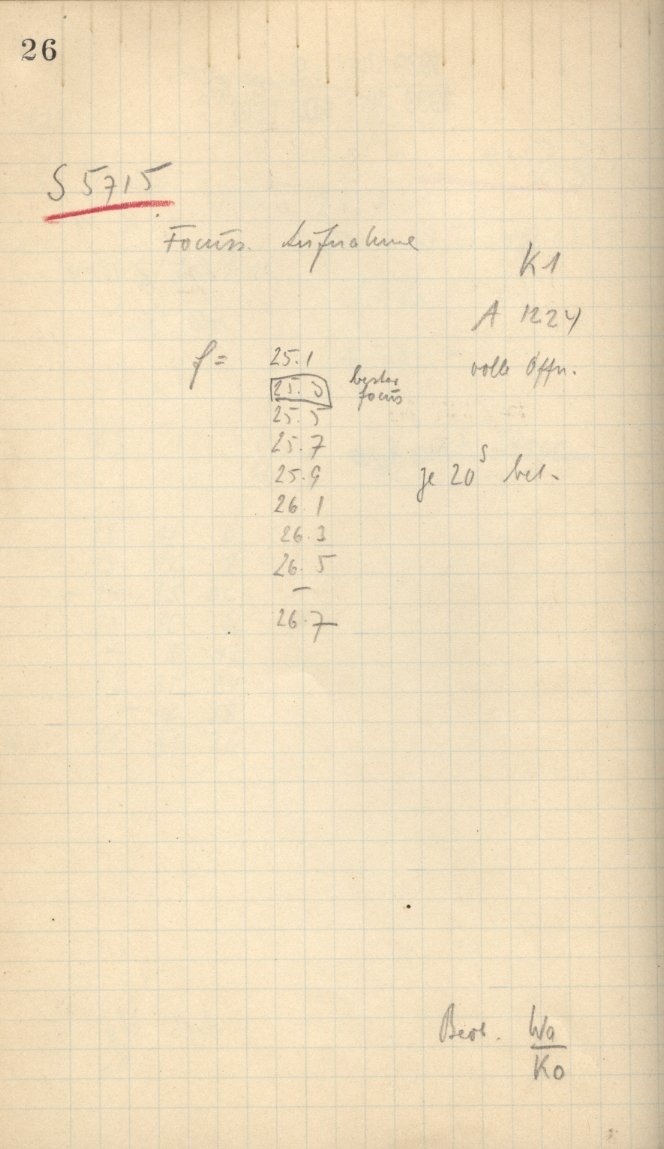 26
S 5715
Focuss. Aufnahme
K1
A 1224
f = 25.1
volle Öffn.
25.3 bester focus
25.5
25.7
25.9
je 20s bel.
26.1
26.3
26.5
–
26.7
Beob. Wa
Ko